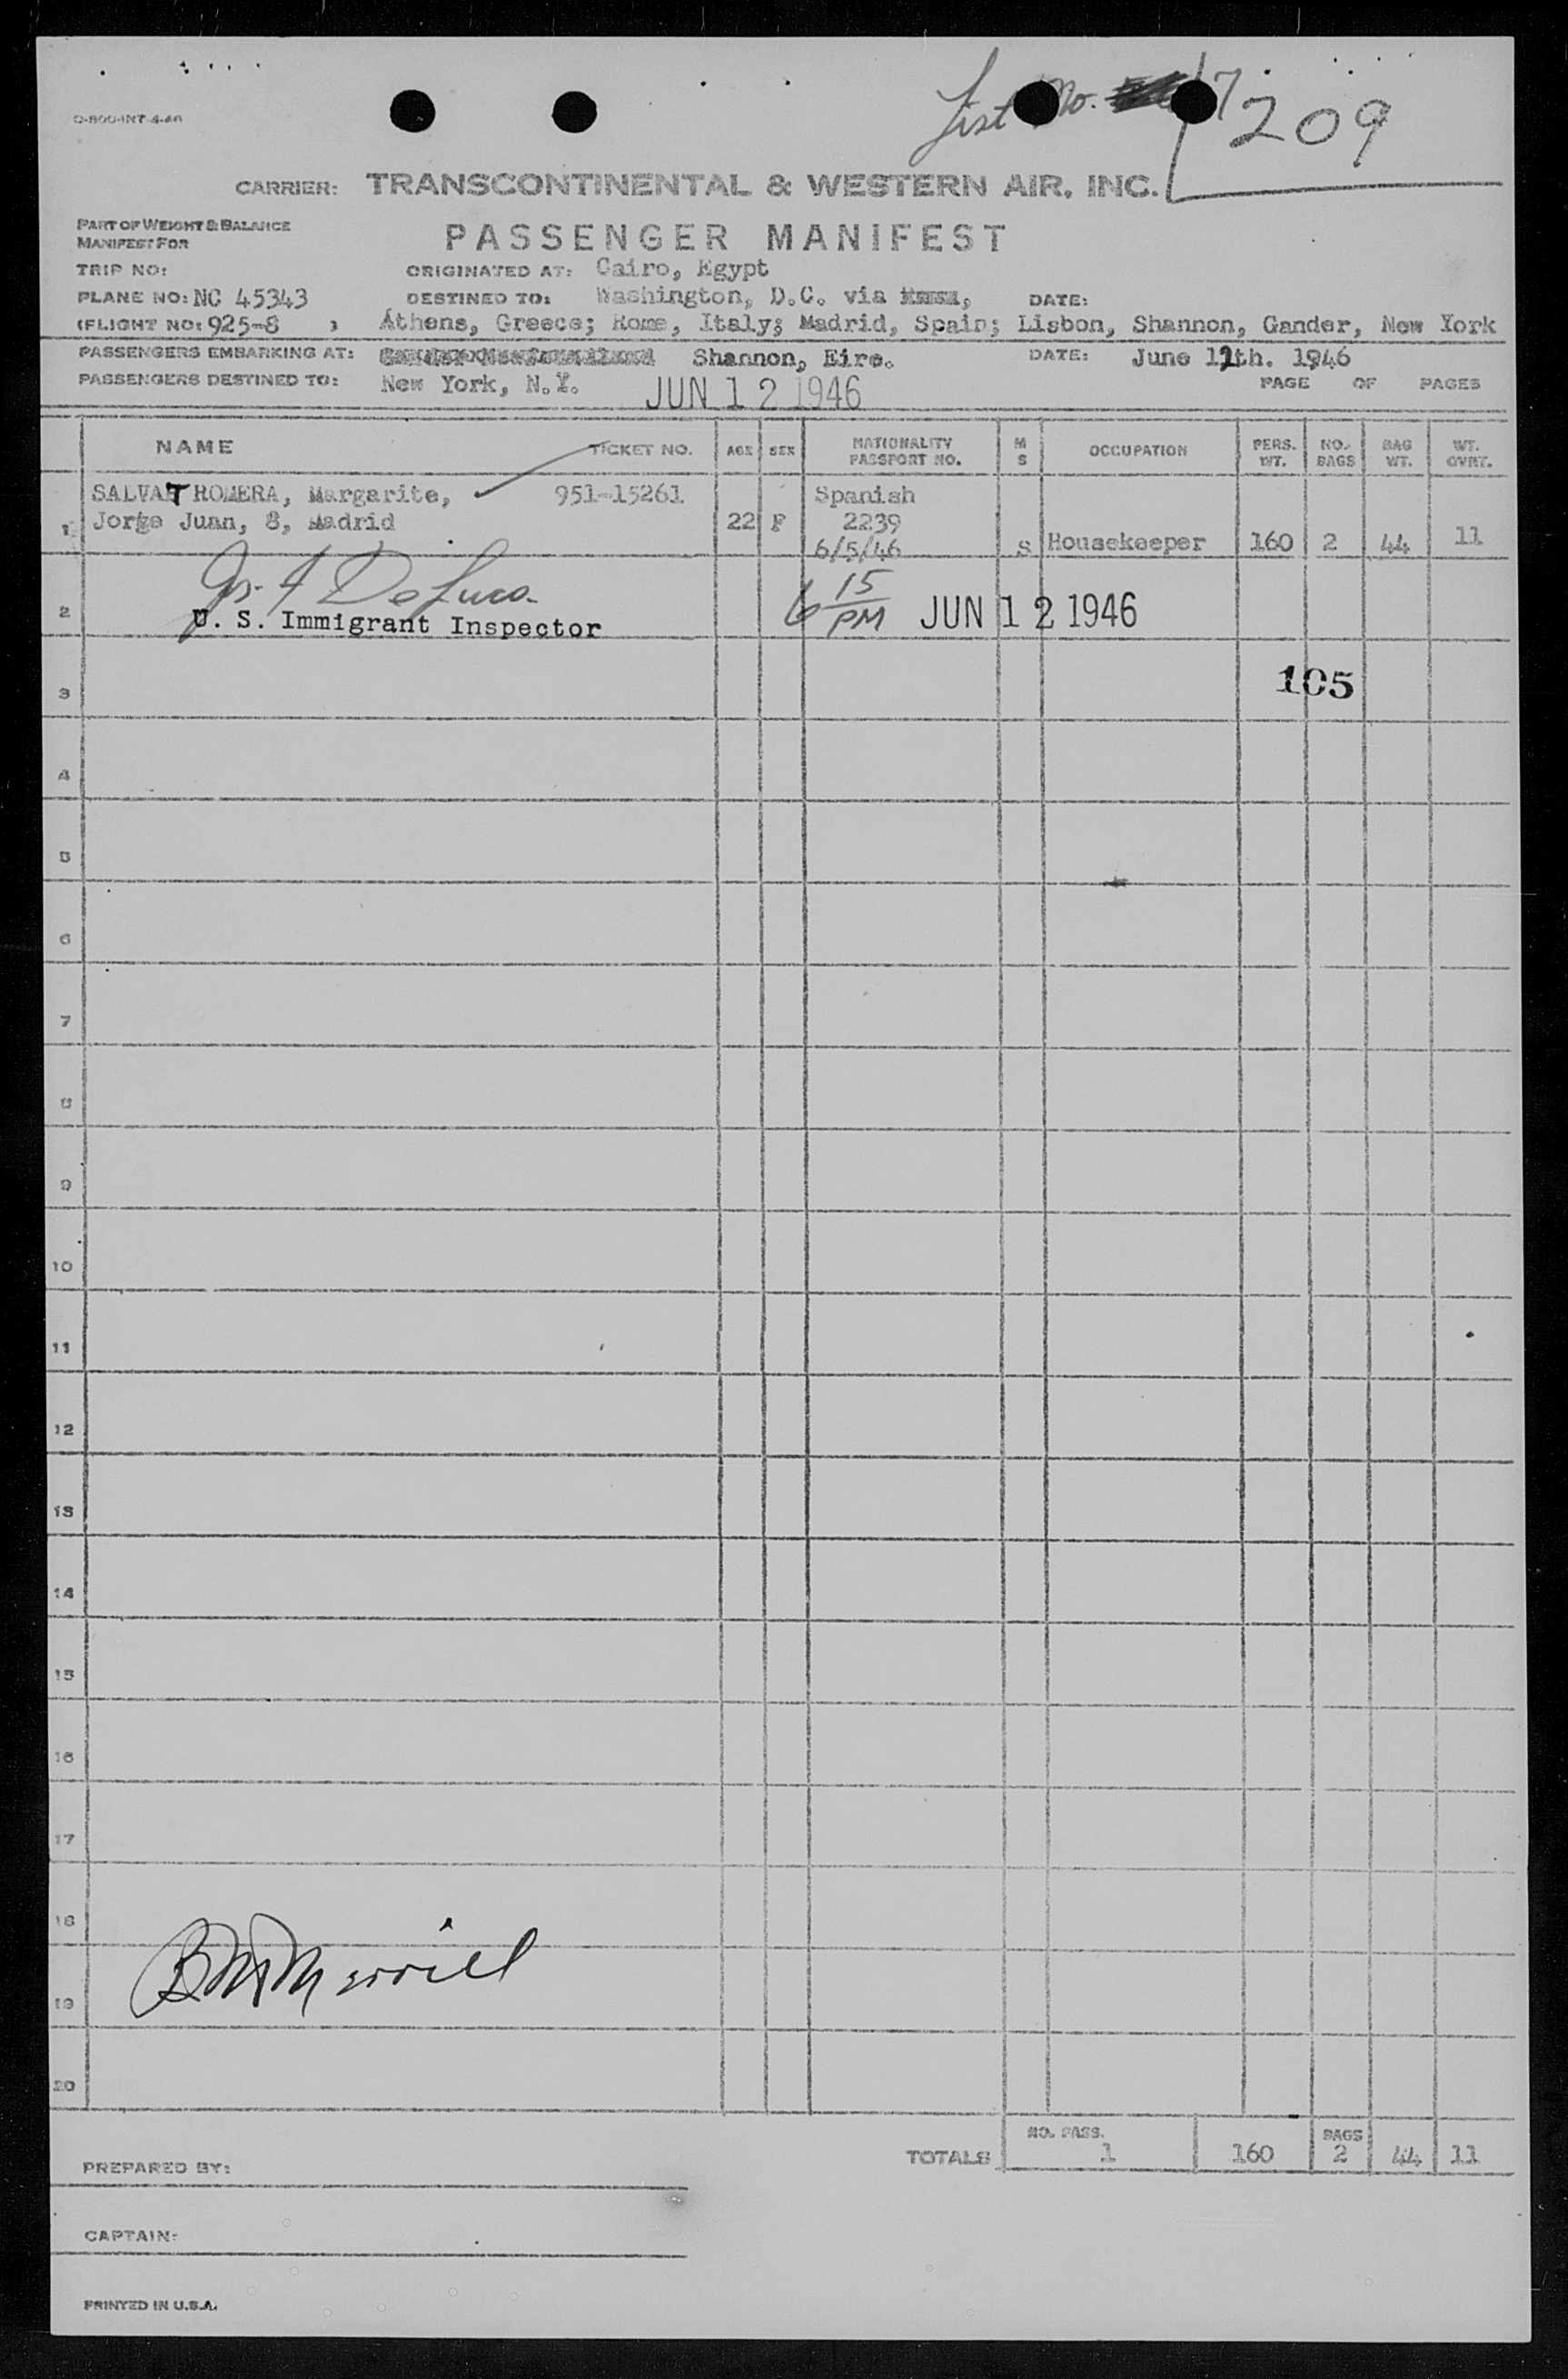 O-800-INT-4-46
List No. 17
209
CARRIER: TRANSCONTINENTAL & WESTERN AIR, INC.
PART OF WEIGHT & BALANCE
MANIFEST FOR
PASSENGER MANIFEST
TRIP NO: ORIGINATED AT: Cairo, Egypt
PLANE NO: NC 45343 DESTINED TO: Washington, D.C. via DATE:
(FLIGHT NO: 925-8 ) Athens, Greece; Rome, Italy; Madrid, Spain; Lisbon, Shannon, Gander, New York
PASSENGERS EMBARKING AT: Shannon, Eire. DATE: June 12th. 1946
PASSENGERS DESTINED TO: New York, N.Y. JUN 12 1946 PAGE OF PAGES
NAME TICKET NO. AGE SEX NATIONALITY PASSPORT NO. M S OCCUPATION PERS. WT. NO. BAGS BAG WT. WT. OVRT.
SALVAT ROMERA, Margarite, 951-15261 Spanish
1 Jorge Juan, 8, Madrid 22 F 2239
6/5/46 S Housekeeper 160 2 44 11
Jos. F DeLuca
2 U. S. Immigrant Inspector 6 15 PM JUN 12 1946
3 105
4
5
6
7
8
9
10
11
12
13
14
15
16
17
18
B M Merrill
19
20
TOTALS NO. PASS. 1 160 BAGS 2 44 11
PREPARED BY:
CAPTAIN:
PRINTED IN U.S.A.